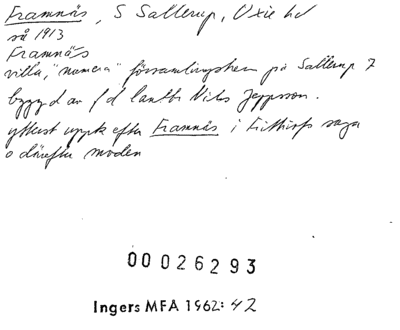 Framnäs, S Sallerup, Oxie hd
så 1913
Framnäs
villa, "numera" församlingshem på Sallerup 7
byggd av f d lantbr Nils Jeppsson.
ytterst uppk efter Framnäs i Frithiofs saga
o därefter moden
00026293
Ingers MFA 1962:42